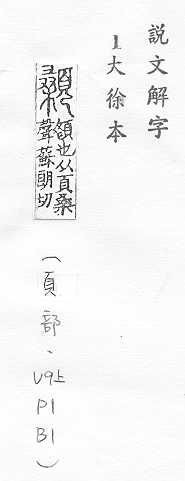 說文解字
1大徐本
顙 頟也从頁桑
聲蘇朗切
(頁部、V9上
P1
B1)